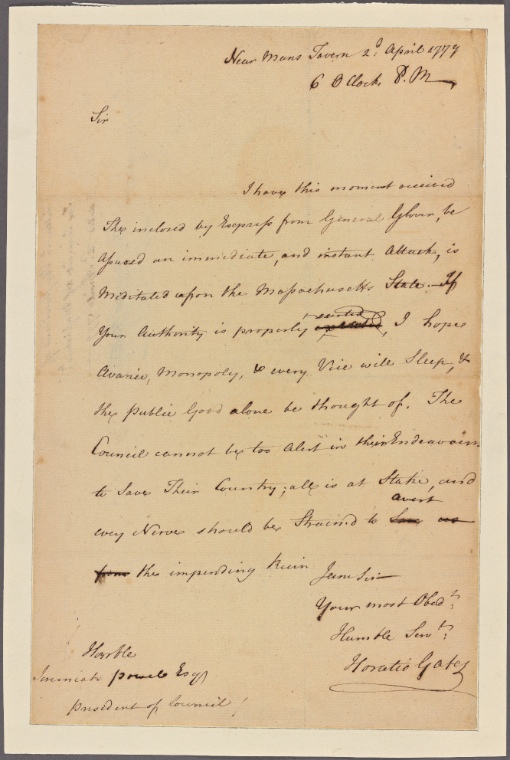 Near Mans Tavern 2d. April 1779
6 O Clock P. M
Sir
I have this moment received
The inclosed by Express from General Glover, be
assured an immediate, and instant Attack, is
meditated upon the Massachusetts State. If
Your Authority is properly exerted, I hope
Avarice, Monopoly, & every Vice will Sleep, &
the public Good alone be thought of. The
Council cannot be too Alert in their Endeavours
to Save Their Country; all is at Stake, and
every Nerve should be Strained to avert
from the impending Ruin
I am Sir
Your most Obedt.
Humble Servt.
Horatio Gates
Honble
Jeremiah Powell Esqr
president of Council